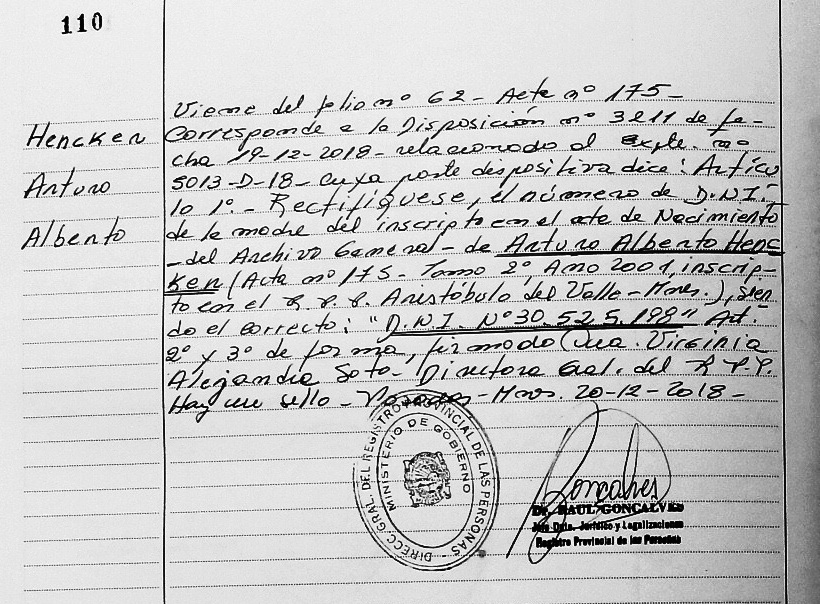 110
Hencken
Arturo
Alberto
Viene del folio nº 62 - Acta nº 175 -
Corresponde a la Disposición nº 3211 de fe-
cha 19-12-2018 - relacionado al Expte. nº
5013-D-18 - Cuya parte dispositiva dice: Artícu
lo 1º. - Rectifíquese, el número de D.N.I.
de la madre del inscripto en el acta de Nacimiento
- del Archivo General - de Arturo Alberto Henc
ken (Acta nº 175 - Tomo 2º, Año 2001, inscrip-
to en el R.P.P. Aristóbulo del Valle - Mnes.), sien
do el correcto: "D.N.I. Nº 30.525.199" Art.
2º y 3º de forma, firmado Dra. Virginia
Alejandra Soto - Directora Gral. del R.P.P.
Hay un sello - Posadas - Mnes. 20-12-2018 -
DIRECC. GRAL. DEL REGISTRO PROVINCIAL DE LAS PERSONAS -
MINISTERIO DE GOBIERNO
Goncalves
Dr. RAUL GONCALVES
Jefe Dpto. Jurídico y Legalizaciones
Registro Provincial de las Personas